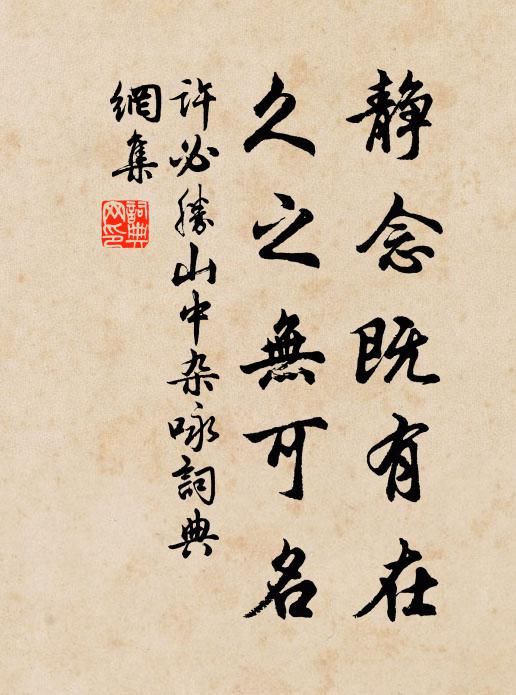 静念既有在
久之無可名
許必勝山中杂咏詞典
網集
詞典
网印